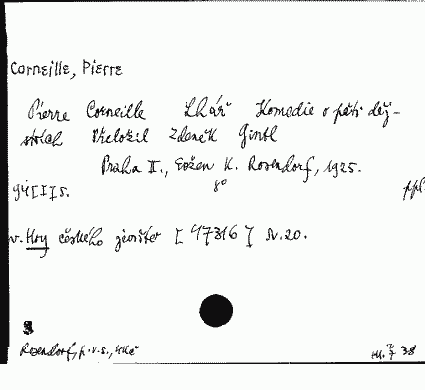 Corneille, Pierre
Pierre Corneille Lhář Komedie o pěti děj-
stvích Přeložil Zdeněk Gintl
Praha II., Evžen K. Rosendorf, 1925.
94 [I] s. 8°
v. Hry českého jeviště [47316] Sv. 20.
Rosendorf, p.v.s., 
38